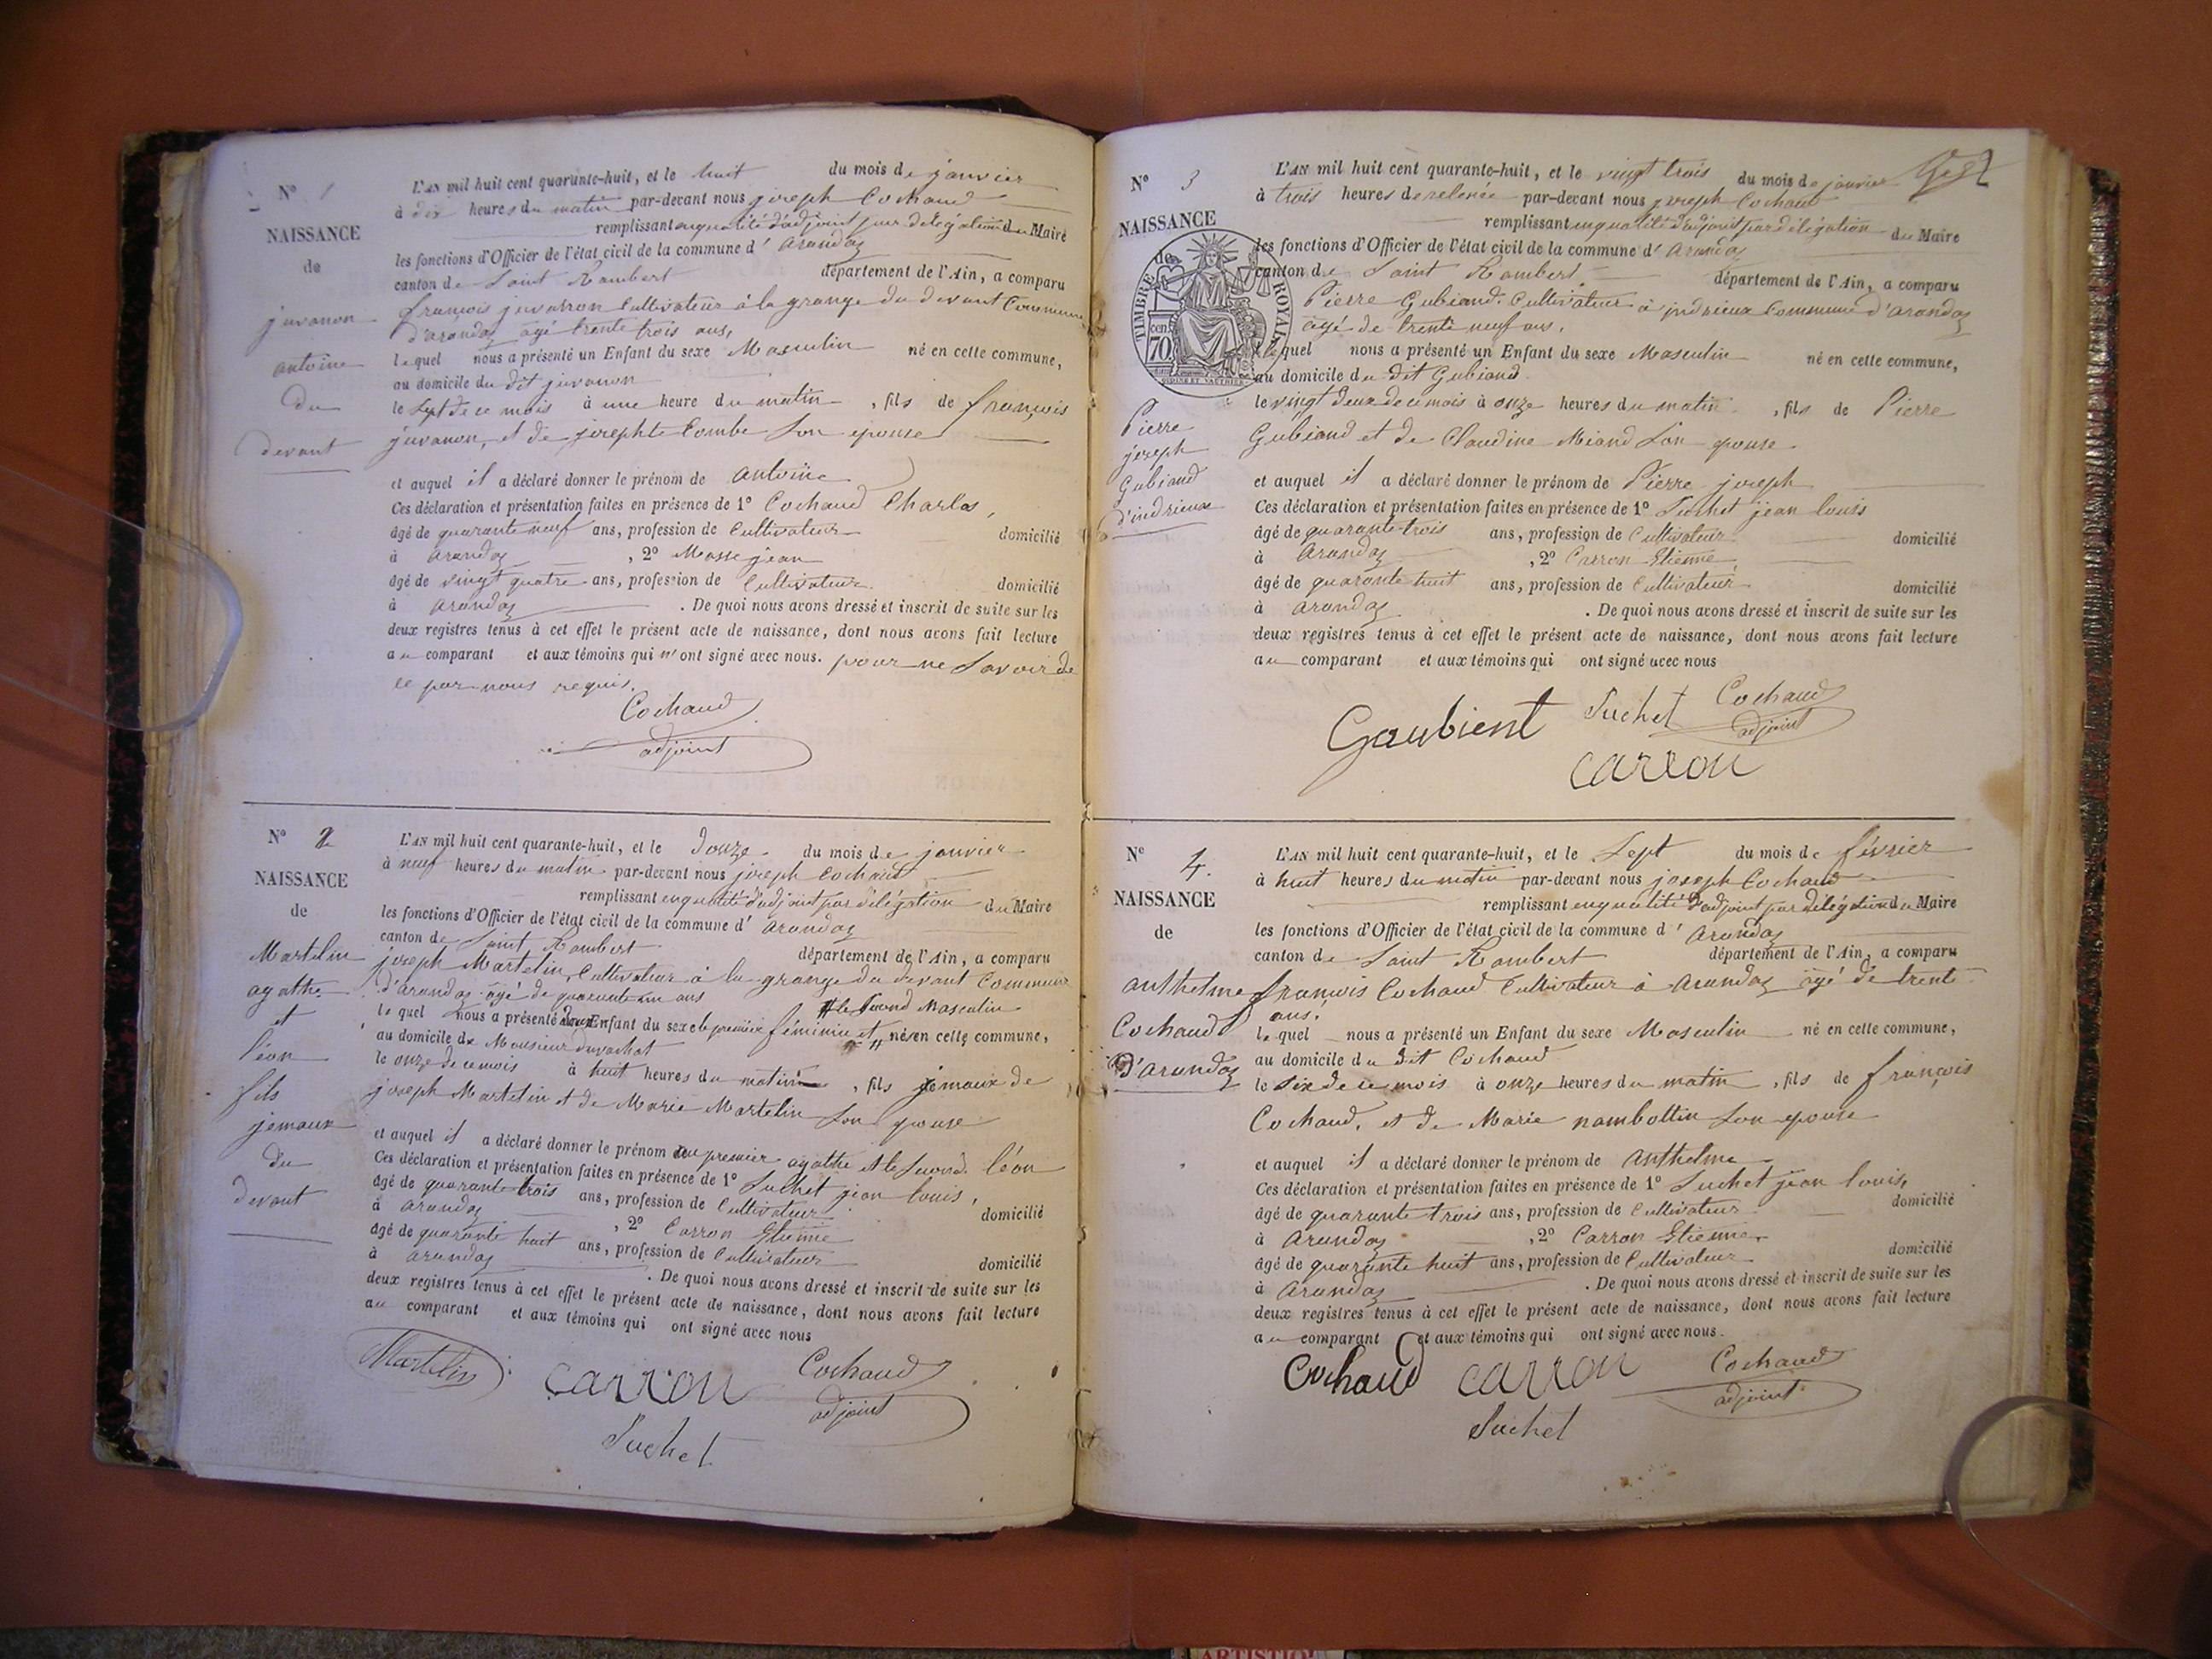 N° 1
NAISSANCE
de
juvanon
antoine
du
devant
L'AN mil huit cent quarante-huit, et le huit du mois de janvier
à dix heures du matin par-devant nous joseph Cochaud
remplissant enqualité d'adjoint par délégation du Maire
les fonctions d'Officier de l'état civil de la commune d' arandaz
canton de Saint Rambert département de l'Ain, a comparu
françois juvanon Cultivateur à la grange du devant Commune
d'arandaz agé trente trois ans,
lequel nous a présenté un Enfant du sexe Masculin né en cette commune,
au domicile du dit juvanon
le sept de ce mois à une heure du matin, fils de françois
juvanon, et de josephte Combe Son épouse
et auquel il a déclaré donner le prénom de antoine
Ces déclaration et présentation faites en présence de 1° Cochaud Charles,
âgé de quarante neuf ans, profession de Cultivateur domicilié
à arandaz, 2° Masse jean
âgé de vingt quatre ans, profession de Cultivateur domicilié
à arandaz. De quoi nous avons dressé et inscrit de suite sur les
deux registres tenus à cet effet le présent acte de naissance, dont nous avons fait lecture
au comparant et aux témoins qui n'ont signé avec nous. pour ne Savoir de
ce par nous requis.
Cochaud
adjoint
N° 2
NAISSANCE
de
Martelin
agathe
et
léon
fils
jémaux
du
devant
L'AN mil huit cent quarante-huit, et le Douze du mois de janvier
à neuf heures du matin par-devant nous joseph Cochaud
remplissant enqualité d'adjoint par délégation du Maire
les fonctions d'Officier de l'état civil de la commune d' arandaz
canton de Saint Rambert département de l'Ain, a comparu
joseph Martelin, Cultivateur à la grange du devant Commune
d'arandaz agé de quarante un ans
# le Second Masculin
lequel nous a présenté deux Enfant du sexe le premier féminin et # nés en cette commune,
au domicile de Monsieur
le onze de ce mois à huit heures du matin, fils jémaux de
joseph Martelin et de Marie Martelin Son épouse
et auquel il a déclaré donner le prénom au premier agathe et le Second léon
Ces déclaration et présentation faites en présence de 1° Suchet jean louis,
âgé de quarante trois ans, profession de Cultivateur domicilié
à arandaz, 2° Carron Etienne
âgé de quarante huit ans, profession de Cultivateur domicilié
à arandaz. De quoi nous avons dressé et inscrit de suite sur les
deux registres tenus à cet effet le présent acte de naissance, dont nous avons fait lecture
au comparant et aux témoins qui ont signé avec nous
Martelin carron Cochaud
adjoint
Suchet
N° 3
NAISSANCE
de
TIMBRE ROYAL
70 cen
Pierre
joseph
Gubiand
d'indrieux
L'AN mil huit cent quarante-huit, et le vingt trois du mois de janvier
à trois heures de relevée par-devant nous joseph Cochaud
remplissant enqualité d'adjoint par délégation du Maire
les fonctions d'Officier de l'état civil de la commune d' arandaz
canton de Saint Rambert département de l'Ain, a comparu
Pierre Gubiand. Cultivateur à indrieux Commune d'arandaz
agé de trente neuf ans.
lequel nous a présenté un Enfant du sexe Masculin né en cette commune,
au domicile du dit Gubiand
le vingt deux de ce mois à onze heures du matin, fils de Pierre
Gubiand et de Claudine Miand Son épouse
et auquel il a déclaré donner le prénom de Pierre joseph
Ces déclaration et présentation faites en présence de 1° Suchet jean louis
âgé de quarante trois ans, profession de Cultivateur domicilié
à arandaz, 2° Carron Etienne,
âgé de quarante huit ans, profession de Cultivateur domicilié
à arandaz. De quoi nous avons dressé et inscrit de suite sur les
deux registres tenus à cet effet le présent acte de naissance, dont nous avons fait lecture
au comparant et aux témoins qui ont signé avec nous
Gaubient Suchet Cochaud
adjoint
carron
N° 4.
NAISSANCE
de
anthelme
Cochaud
d'arandaz
L'AN mil huit cent quarante-huit, et le Sept du mois de février
à huit heures du matin par-devant nous joseph Cochaud
remplissant enqualité d'adjoint par délégation du Maire
les fonctions d'Officier de l'état civil de la commune d' arandaz
canton de Saint Rambert département de l'Ain, a comparu
françois Cochaud Cultivateur à arandaz agé de trente
ans.
lequel nous a présenté un Enfant du sexe Masculin né en cette commune,
au domicile du dit Cochaud
le Six de ce mois à onze heures du matin, fils de françois
Cochaud, et de Marie nambottin Son épouse
et auquel il a déclaré donner le prénom de anthelme
Ces déclaration et présentation faites en présence de 1° Suchet jean louis,
âgé de quarante trois ans, profession de Cultivateur domicilié
à arandaz, 2° Carron Etienne
âgé de quarante huit ans, profession de Cultivateur domicilié
à arandaz. De quoi nous avons dressé et inscrit de suite sur les
deux registres tenus à cet effet le présent acte de naissance, dont nous avons fait lecture
au comparant et aux témoins qui ont signé avec nous.
Cochaud carron Cochaud
adjoint
Suchet